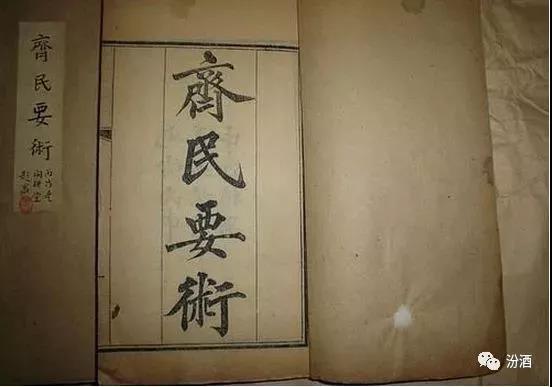 齊民要術
齊民要術
汾酒